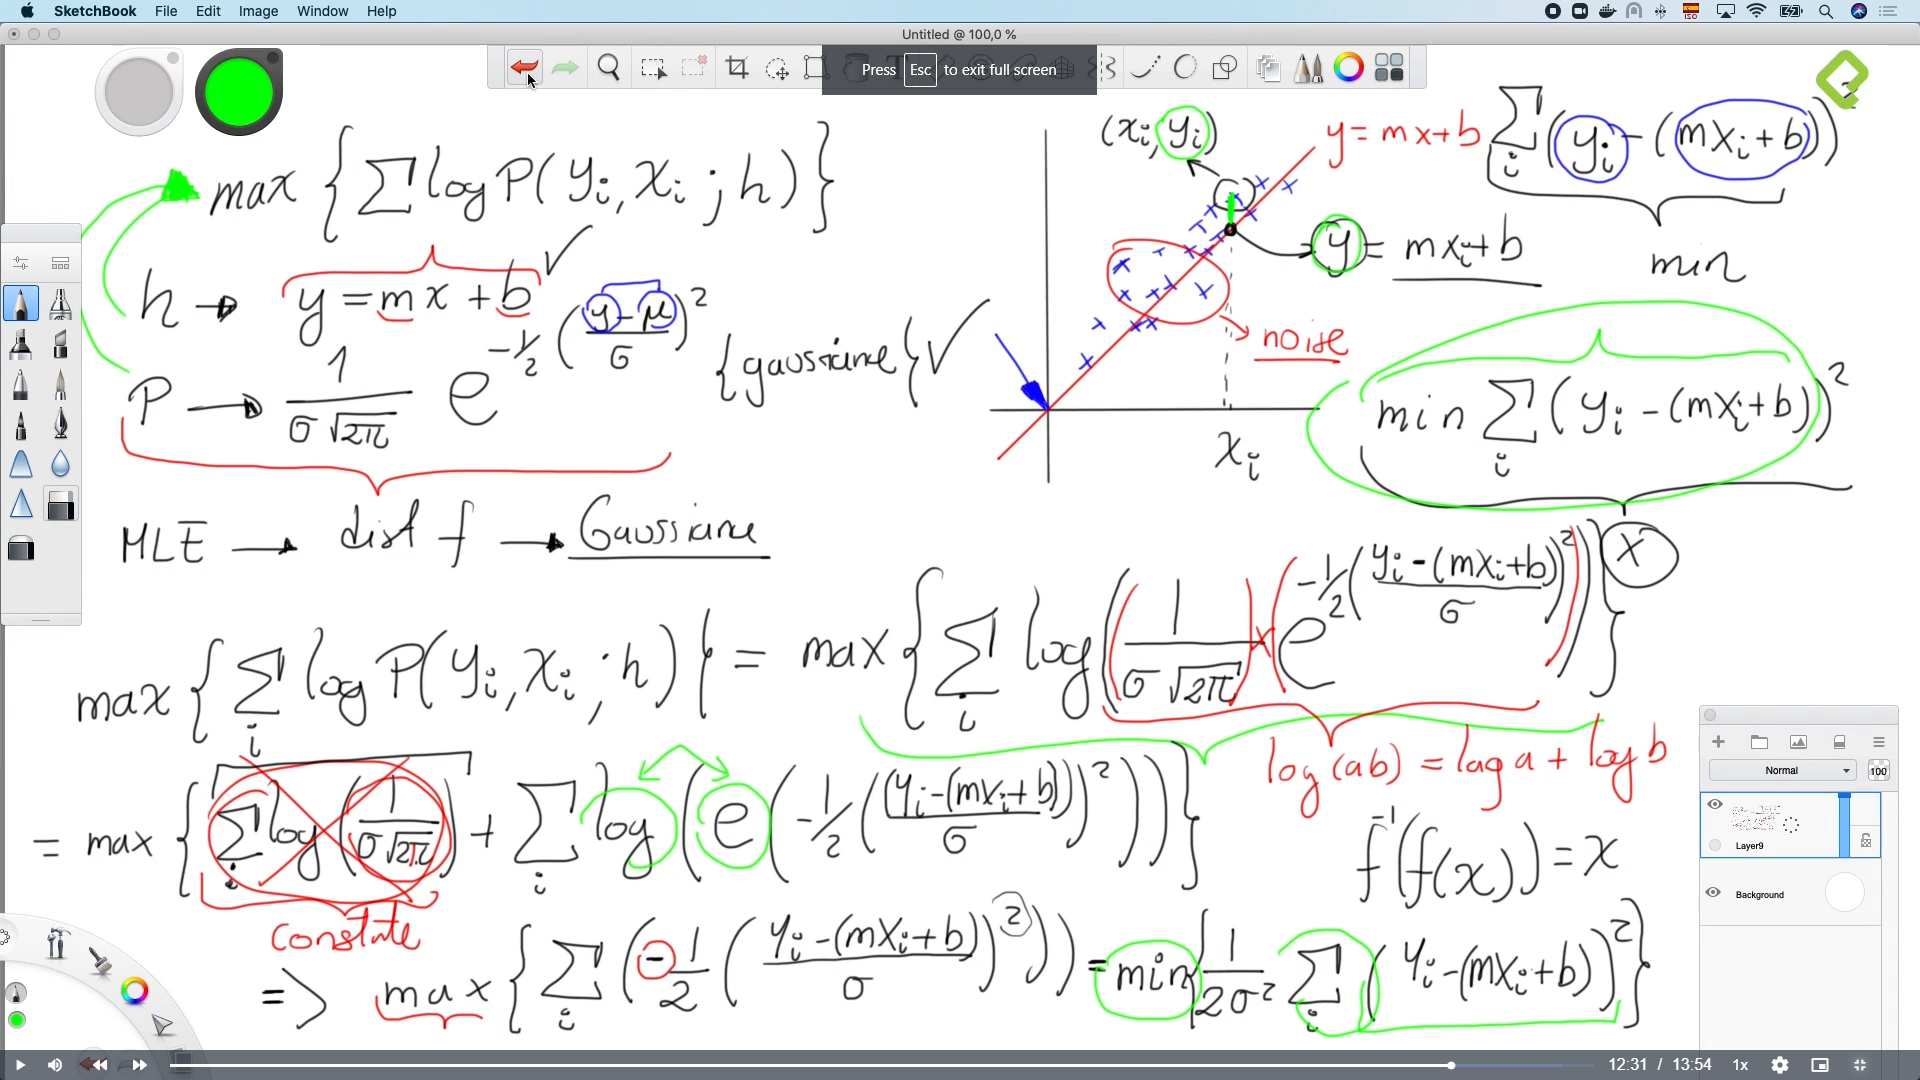 SketchBook File Edit Image Window Help
Untitled @ 100,0 %
Press Esc to exit full screen
max { Σ log P( yi, xi ; h ) }
h → y = mx + b ✓
P → 1/(σ√2π) e^(-1/2 ((y-μ)/σ)^2) {gaussiane} ✓
MLE → dist f → Gaussiane
(xi, yi)
y = mx+b
Σ_i (yi - (mxi+b))^2
min
y = mxi+b
noise
xi
min Σ_i (yi - (mxi+b))^2
x
max { Σ_i log P( yi, xi ; h ) } = max { Σ_i log( (1/(σ√2π)) x (e^(-1/2 ((yi-(mxi+b))/σ)^2)) ) }
log (ab) = log a + log b
= max { Σ_i log( 1/(σ√2π) ) + Σ_i log( e ( -1/2 ( ((yi-(mxi+b))/σ)^2 ) ) ) }
f^-1(f(x)) = x
constate
=> max { Σ_i ( -1/2 ( (yi-(mxi+b))/σ )^2 ) ) = min { 1/(2σ^2) Σ_i ( yi-(mxi+b) )^2 }
Normal 100
Layer9
Background
12:31 / 13:54 1x